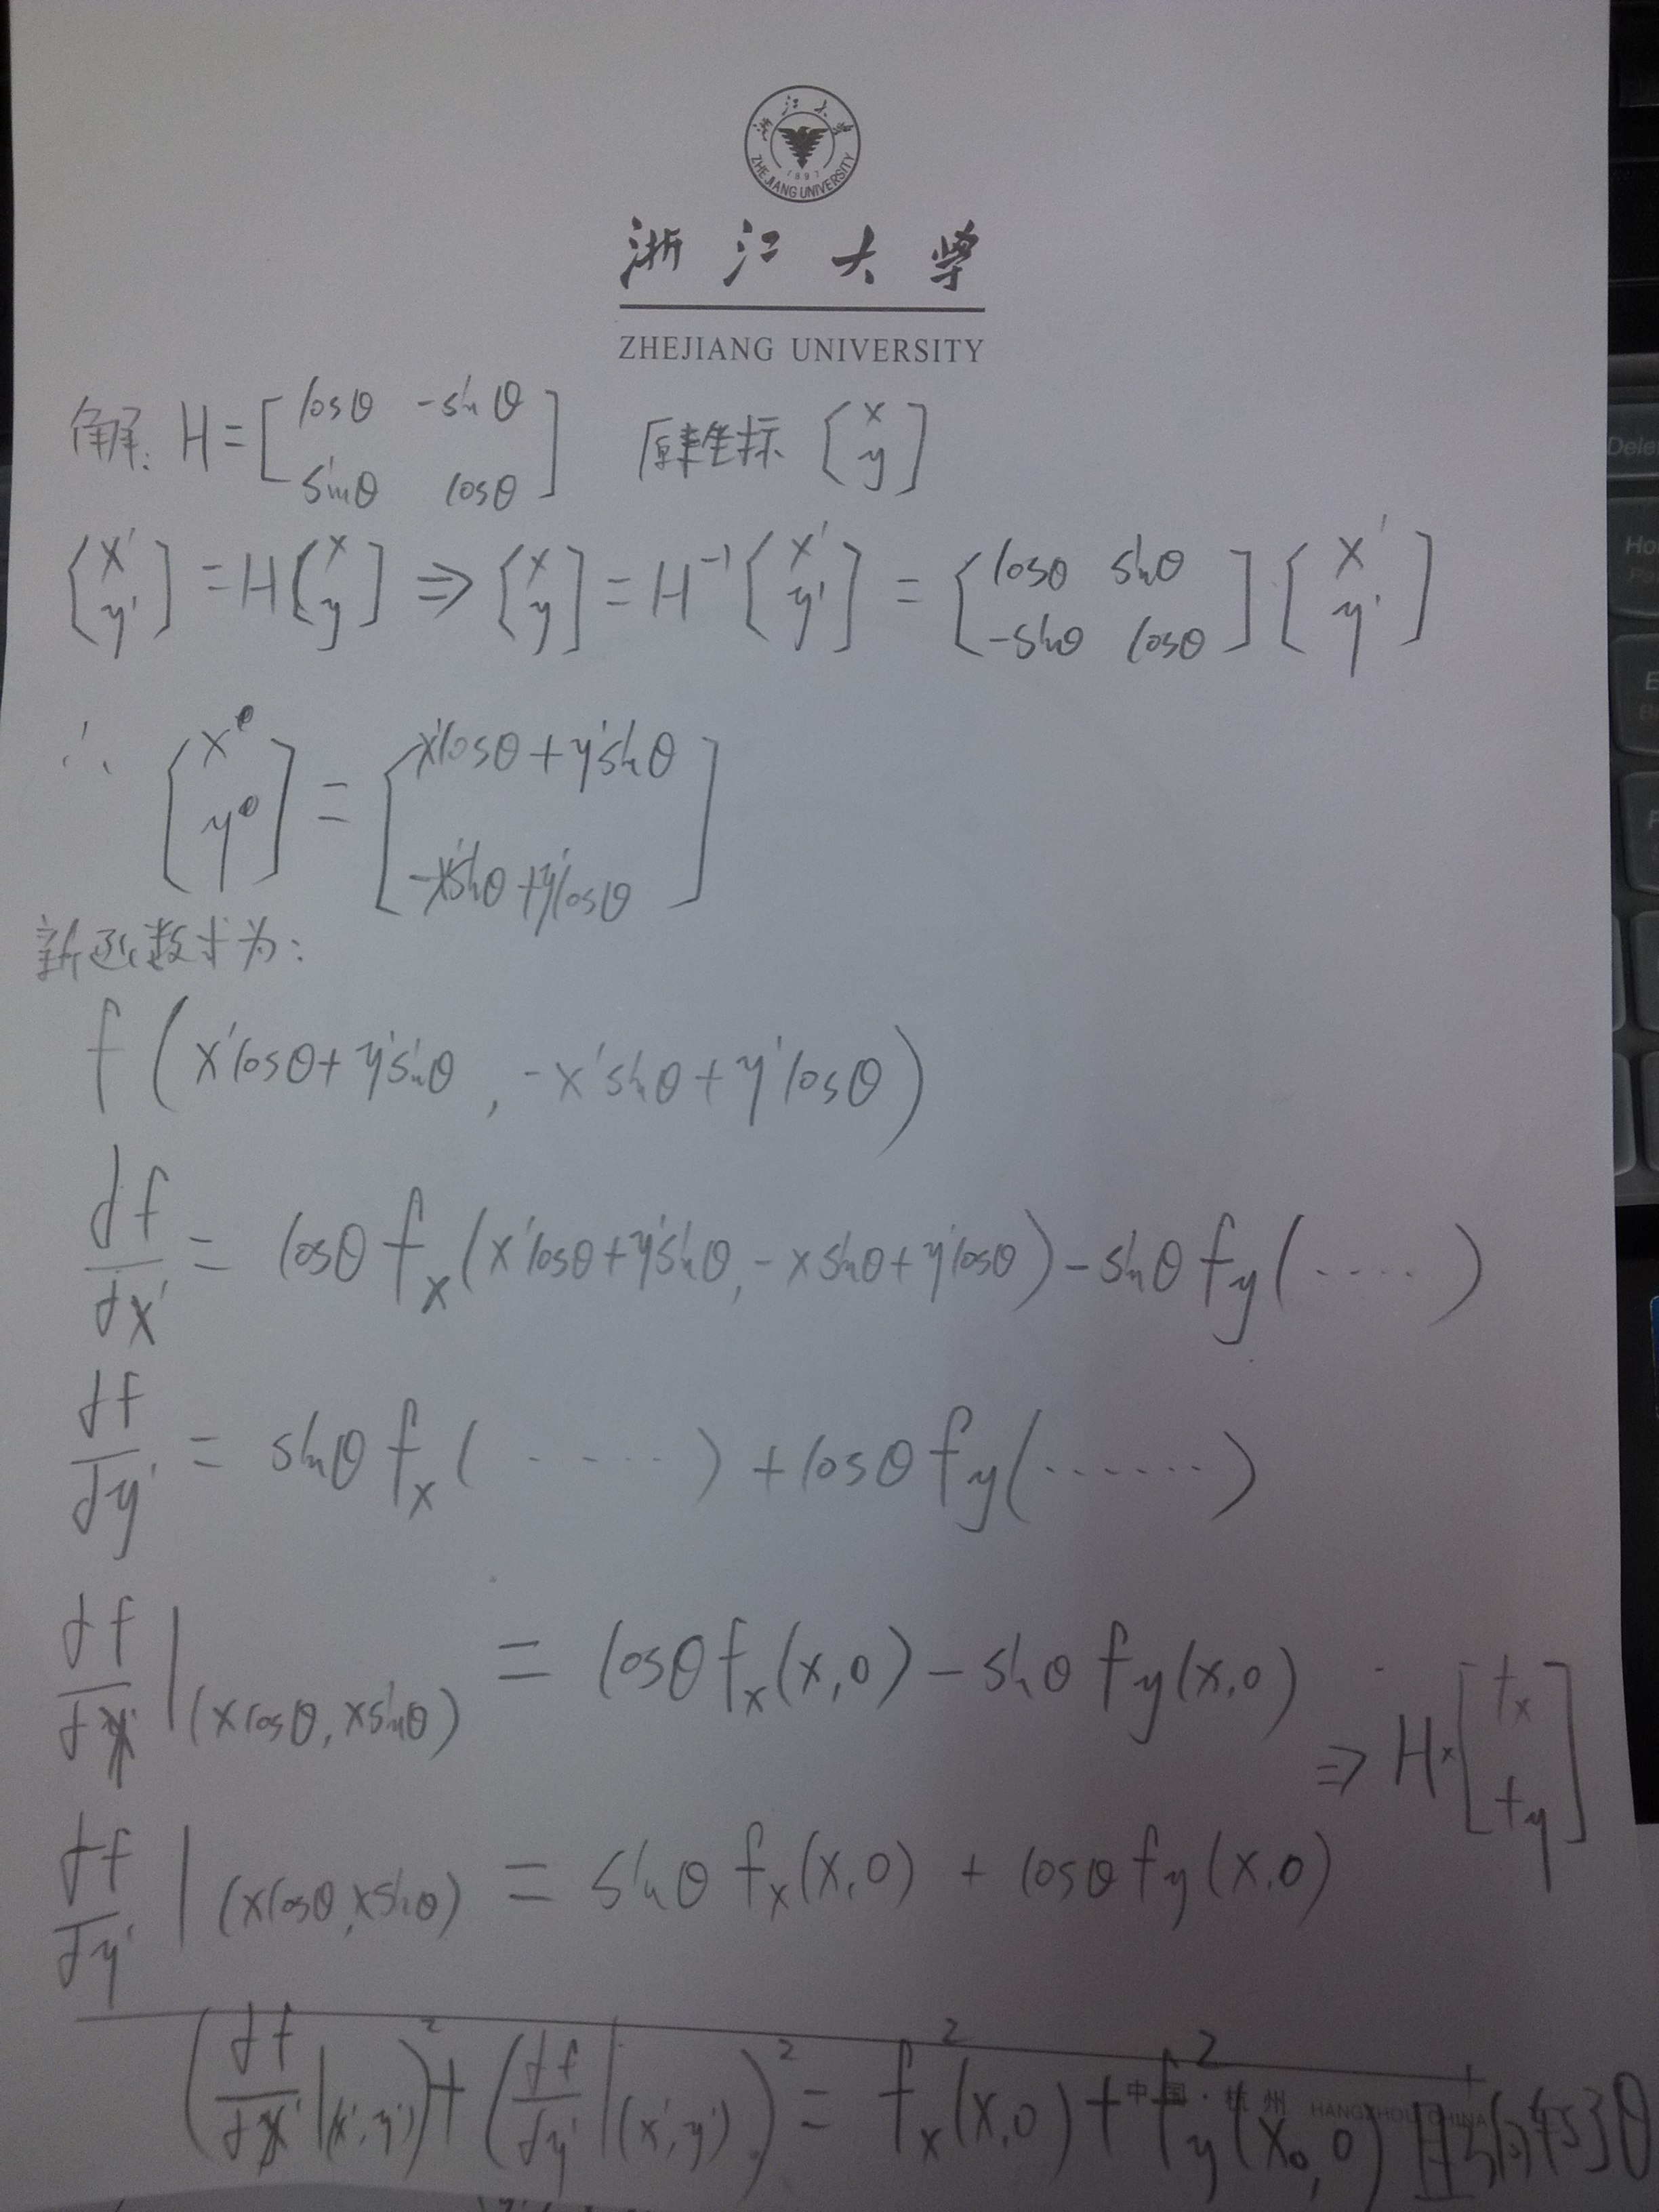 浙江大学
ZHEJIANG UNIVERSITY
1897
浙江大学
ZHEJIANG UNIVERSITY
解: H = [cosθ -sinθ; sinθ cosθ] 原坐标 [x; y]
[x'; y'] = H[x; y] ⇒ [x; y] = H⁻¹[x'; y'] = [cosθ sinθ; -sinθ cosθ][x'; y']
∴ [x; y] = [x'cosθ + y'sinθ; -x'sinθ + y'cosθ]
新函数式为:
f(x'cosθ + y'sinθ, -x'sinθ + y'cosθ)
df/dx' = cosθ f_x(x'cosθ + y'sinθ, -x sinθ + y'cosθ) - sinθ f_y(····)
df/dy' = sinθ f_x(·····) + cosθ f_y(·······)
df/dx' |(x cosθ, x sinθ) = cosθ f_x(x,0) - sinθ f_y(x,0)
⇒ H × [f_x; f_y]
df/dy' |(x cosθ, x sinθ) = sinθ f_x(x,0) + cosθ f_y(x,0)
(df/dx' |(x',y'))² + (df/dy' |(x',y'))² = f_x²(x,0) + f_y²(x₀,0) θ
中国·杭州 HANGZHOU CHINA